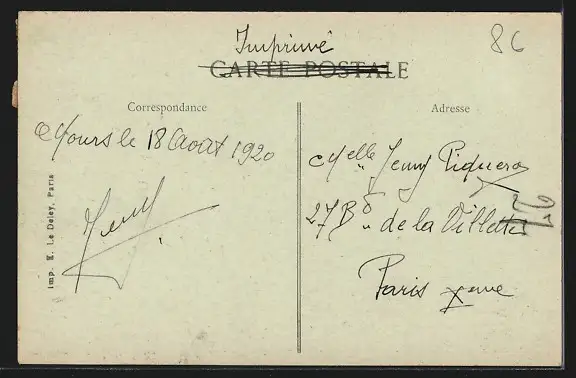 Imprimé
86
CARTE POSTALE
Correspondance
Adresse
Tours le 18 Août 1920
Jeny
Melle Jeny Piquera
27 Bd de la Villette
Paris Xeme
Imp. E. Le Deley, Paris